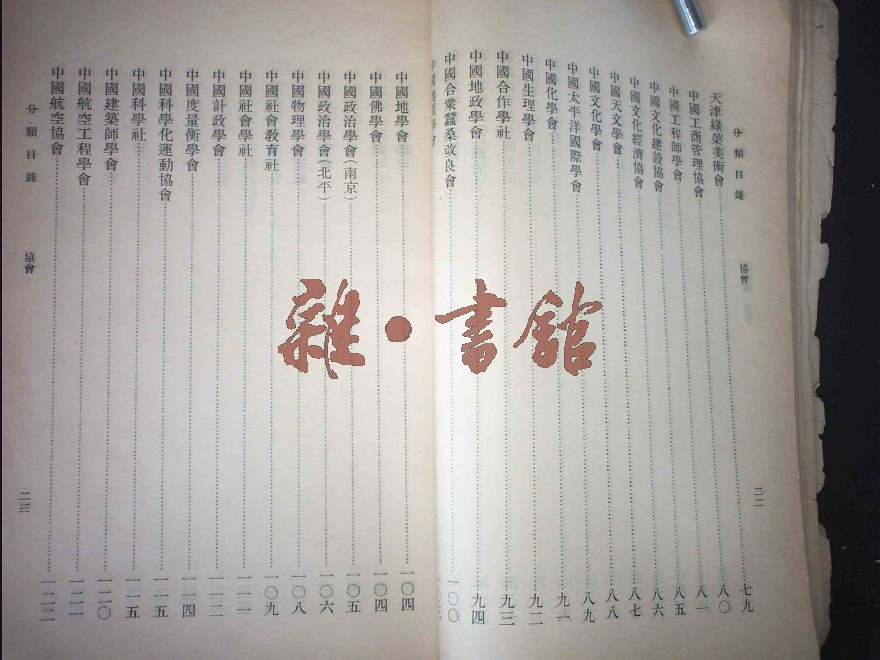 分類目錄 協會 二二
天津綠蕖美術會 七九
中國工商管理協會 八〇
中國工程師學會 八一
中國文化建設協會 八五
中國文化經濟協會 八六
中國天文學會 八七
中國文化學會 八八
中國太平洋國際學會 八九
中國化學會 九一
中國生理學會 九二
中國合作學社 九三
中國地政學會 九四
中國合衆蠶桑改良會 一〇〇
中國地學會 一〇四
中國佛學會 一〇四
中國政治學會(南京) 一〇五
中國政治學會(北平) 一〇六
中國物理學會 一〇八
中國社會敎育社 一〇九
中國社會學社 一一一
中國計政學會 一一二
中國度量衡學會 一一四
中國科學化運動協會 一一五
中國科學社 一一五
中國建築師學會 一二〇
中國航空工程學會 一二一
中國航空協會 一二二
分類目錄 協會 二三
雜·書館